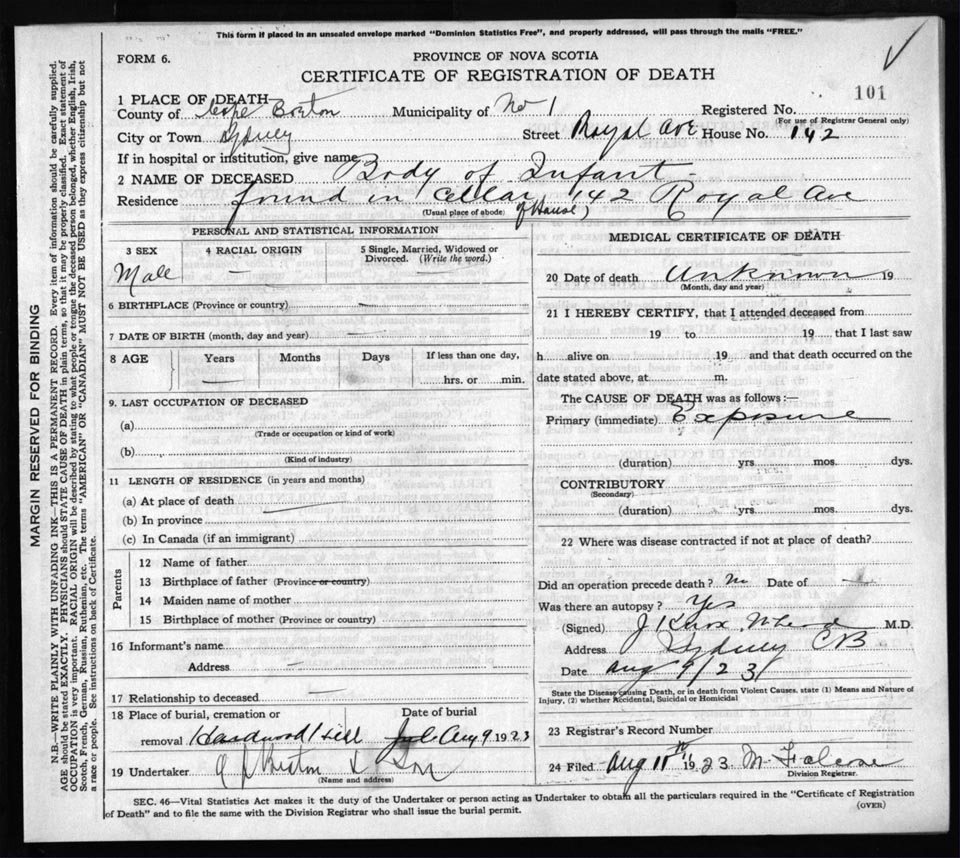 This form if placed in an unsealed envelope marked "Dominion Statistics Free", and properly addressed, will pass through the mails "FREE."
FORM 6.
PROVINCE OF NOVA SCOTIA
CERTIFICATE OF REGISTRATION OF DEATH
101
1 PLACE OF DEATH
County of Cape Breton Municipality of No 1 Registered No.
(For use of Registrar General only)
City or Town Sydney Street Royal Ave House No. 142
If in hospital or institution, give name
2 NAME OF DECEASED Body of Infant
Residence found in Cellar 142 Royal Ave
(Usual place of abode) of House)
PERSONAL AND STATISTICAL INFORMATION
3 SEX 4 RACIAL ORIGIN 5 Single, Married, Widowed or
Divorced. (Write the word.)
Male —
6 BIRTHPLACE (Province or country) —
7 DATE OF BIRTH (month, day and year) —
8 AGE Years Months Days If less than one day,
hrs. or min.
9. LAST OCCUPATION OF DECEASED
(a)
(Trade or occupation or kind of work)
(b)
(Kind of industry)
11 LENGTH OF RESIDENCE (in years and months)
(a) At place of death
(b) In province
(c) In Canada (if an immigrant)
Parents
12 Name of father
13 Birthplace of father (Province or country)
14 Maiden name of mother
15 Birthplace of mother (Province or country)
16 Informant's name
Address —
17 Relationship to deceased —
18 Place of burial, cremation or Date of burial
removal Hardwood Hill Aug 9 1923
19 Undertaker & Son
(Name and address)
MEDICAL CERTIFICATE OF DEATH
20 Date of death Unknown 19
(Month, day and year)
21 I HEREBY CERTIFY, that I attended deceased from
19 to 19 that I last saw
h alive on 19 and that death occurred on the
date stated above, at m.
The CAUSE OF DEATH was as follows:—
Primary (immediate) Exposure
(duration) yrs mos. dys.
CONTRIBUTORY
(Secondary)
(duration) yrs mos. dys.
22 Where was disease contracted if not at place of death?
Did an operation precede death? No Date of —
Was there an autopsy? Yes
(Signed) J Knox M.D.
Address Sydney CB
Date Aug 9/23
State the Disease causing Death, or in death from Violent Causes, state (1) Means and Nature of
Injury, (2) whether Accidental, Suicidal or Homicidal
23 Registrar's Record Number
24 Filed Aug 11th 1923 M
Division Registrar.
SEC. 46—Vital Statistics Act makes it the duty of the Undertaker or person acting as Undertaker to obtain all the particulars required in the "Certificate of Registration
of Death" and to file the same with the Division Registrar who shall issue the burial permit.
(OVER)
MARGIN RESERVED FOR BINDING
N.B.—WRITE PLAINLY WITH UNFADING INK—THIS IS A PERMANENT RECORD. Every item of information should be carefully supplied.
AGE should be stated EXACTLY. PHYSICIANS should STATE CAUSE OF DEATH in plain terms, so that it may be properly classified. Exact statement of
OCCUPATION is very important. RACIAL ORIGIN will be described by stating to what people or tongue the deceased person belonged, whether English, Irish,
Scotch, French, German, Russian, Ruthenian, etc. The terms "AMERICAN" OR "CANADIAN" MUST NOT BE USED as they express citizenship but not
a race or people. See instructions on back of Certificate.